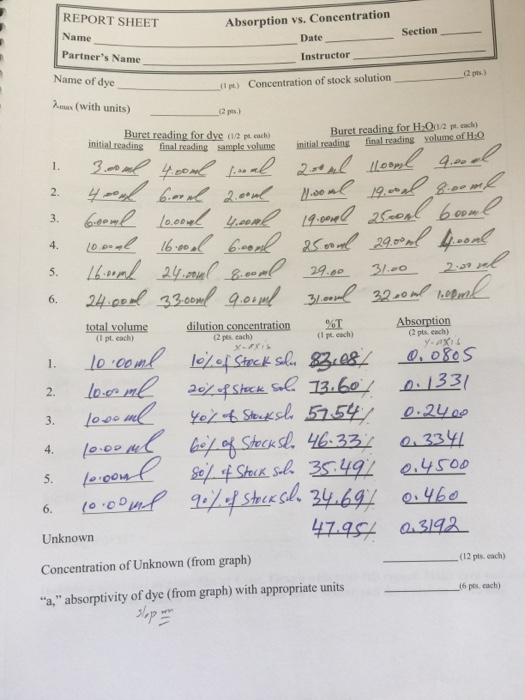 REPORT SHEET Absorption vs. Concentration
Name Date Section
Partner's Name Instructor
Name of dye (1 pt.) Concentration of stock solution (2 pts.)
λmax (with units) (2 pts.)
Buret reading for dye (1/2 pt. each) Buret reading for H2O (1/2 pt. each)
initial reading final reading sample volume initial reading final reading volume of H2O
1. 3.00ml 4.00ml 1.00ml 2.00ml 11.00ml 9.00ml
2. 4.00ml 6.00ml 2.00ml 11.00ml 19.00ml 8.00ml
3. 6.00ml 10.00ml 4.00ml 19.00ml 25.00ml 6.00ml
4. 10.00ml 16.00ml 6.00ml 25.00ml 29.00ml 4.00ml
5. 16.00ml 24.00ml 8.00ml 29.00 31.00 2.00ml
6. 24.00ml 33.00ml 9.00ml 31.00ml 32.00ml 1.00ml
total volume dilution concentration %T Absorption
(1 pt. each) (2 pts. each) (1 pt. each) (2 pts. each)
x-axis y-axis
1. 10.00ml 10% of Stock sol. 83.08% 0.0805
2. 10.00ml 20% of Stock Sol. 73.60% 0.1331
3. 10.00ml 40% of Stock sol. 57.54% 0.2400
4. 10.00ml 60% of Stock sol. 46.33% 0.3341
5. 10.00ml 80% of Stock sol. 35.49% 0.4500
6. 10.00ml 90% of Stock sol. 34.69% 0.460
Unknown 47.95% 0.3192
Concentration of Unknown (from graph) (12 pts. each)
"a," absorptivity of dye (from graph) with appropriate units (6 pts. each)